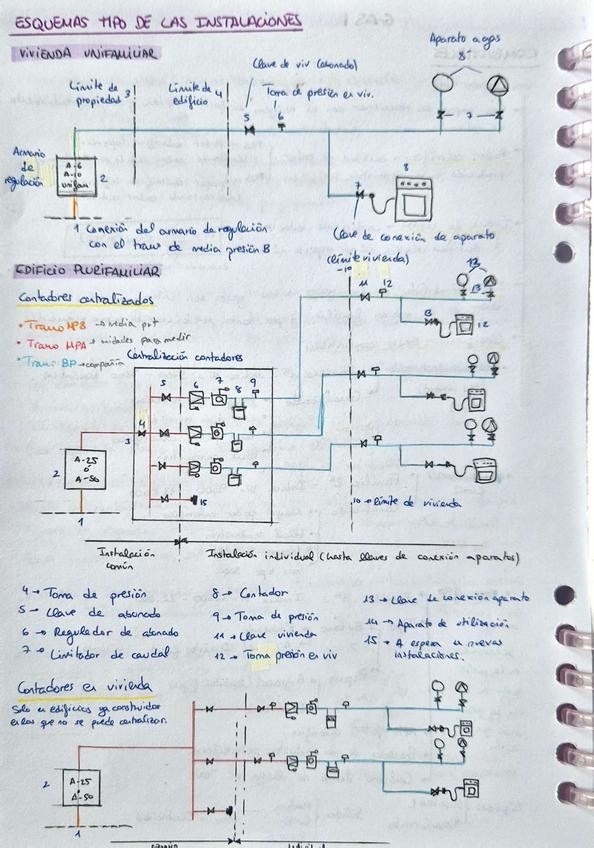 ESQUEMAS TIPO DE LAS INSTALACIONES
VIVIENDA UNIFAMILIAR
Aparato a gas
8
Llave de viv (abonado)
Límite de propiedad 3
Límite de 4 edificio
Toma de presión en viv.
5 6
7
Armario de regulación
A-6
A-10
unifam
2
8
7
1 Conexión del armario de regulación
con el tramo de media presión B
Llave de conexión de aparato
EDIFICIO PLURIFAMILIAR
(límite vivienda)
10
11 12
13
13
Contadores centralizados
• Tramo MPB → media
• Tramo MPA → unidades para medir
• Tramo BP → compañía
Centralización contadores
13
12
5 6 7 8 9
4
3
2
A-25
ó
A-50
15
1
10 → límite de vivienda
Instalación común
Instalación individual (hasta llaves de conexión aparatos)
4 → Toma de presión
5 → Llave de abonado
6 → Regulador de abonado
7 → Limitador de caudal
8 → Contador
9 → Toma de presión
11 → Llave vivienda
12 → Toma presión en viv
13 → Llave de conexión aparato
14 → Aparato de utilización
15 → A espera de nuevas
instalaciones.
Contadores en vivienda
Solo en edificios ya construidos
en los que no se puede centralizar.
2
A-25
ó
A-50
1
común
individual